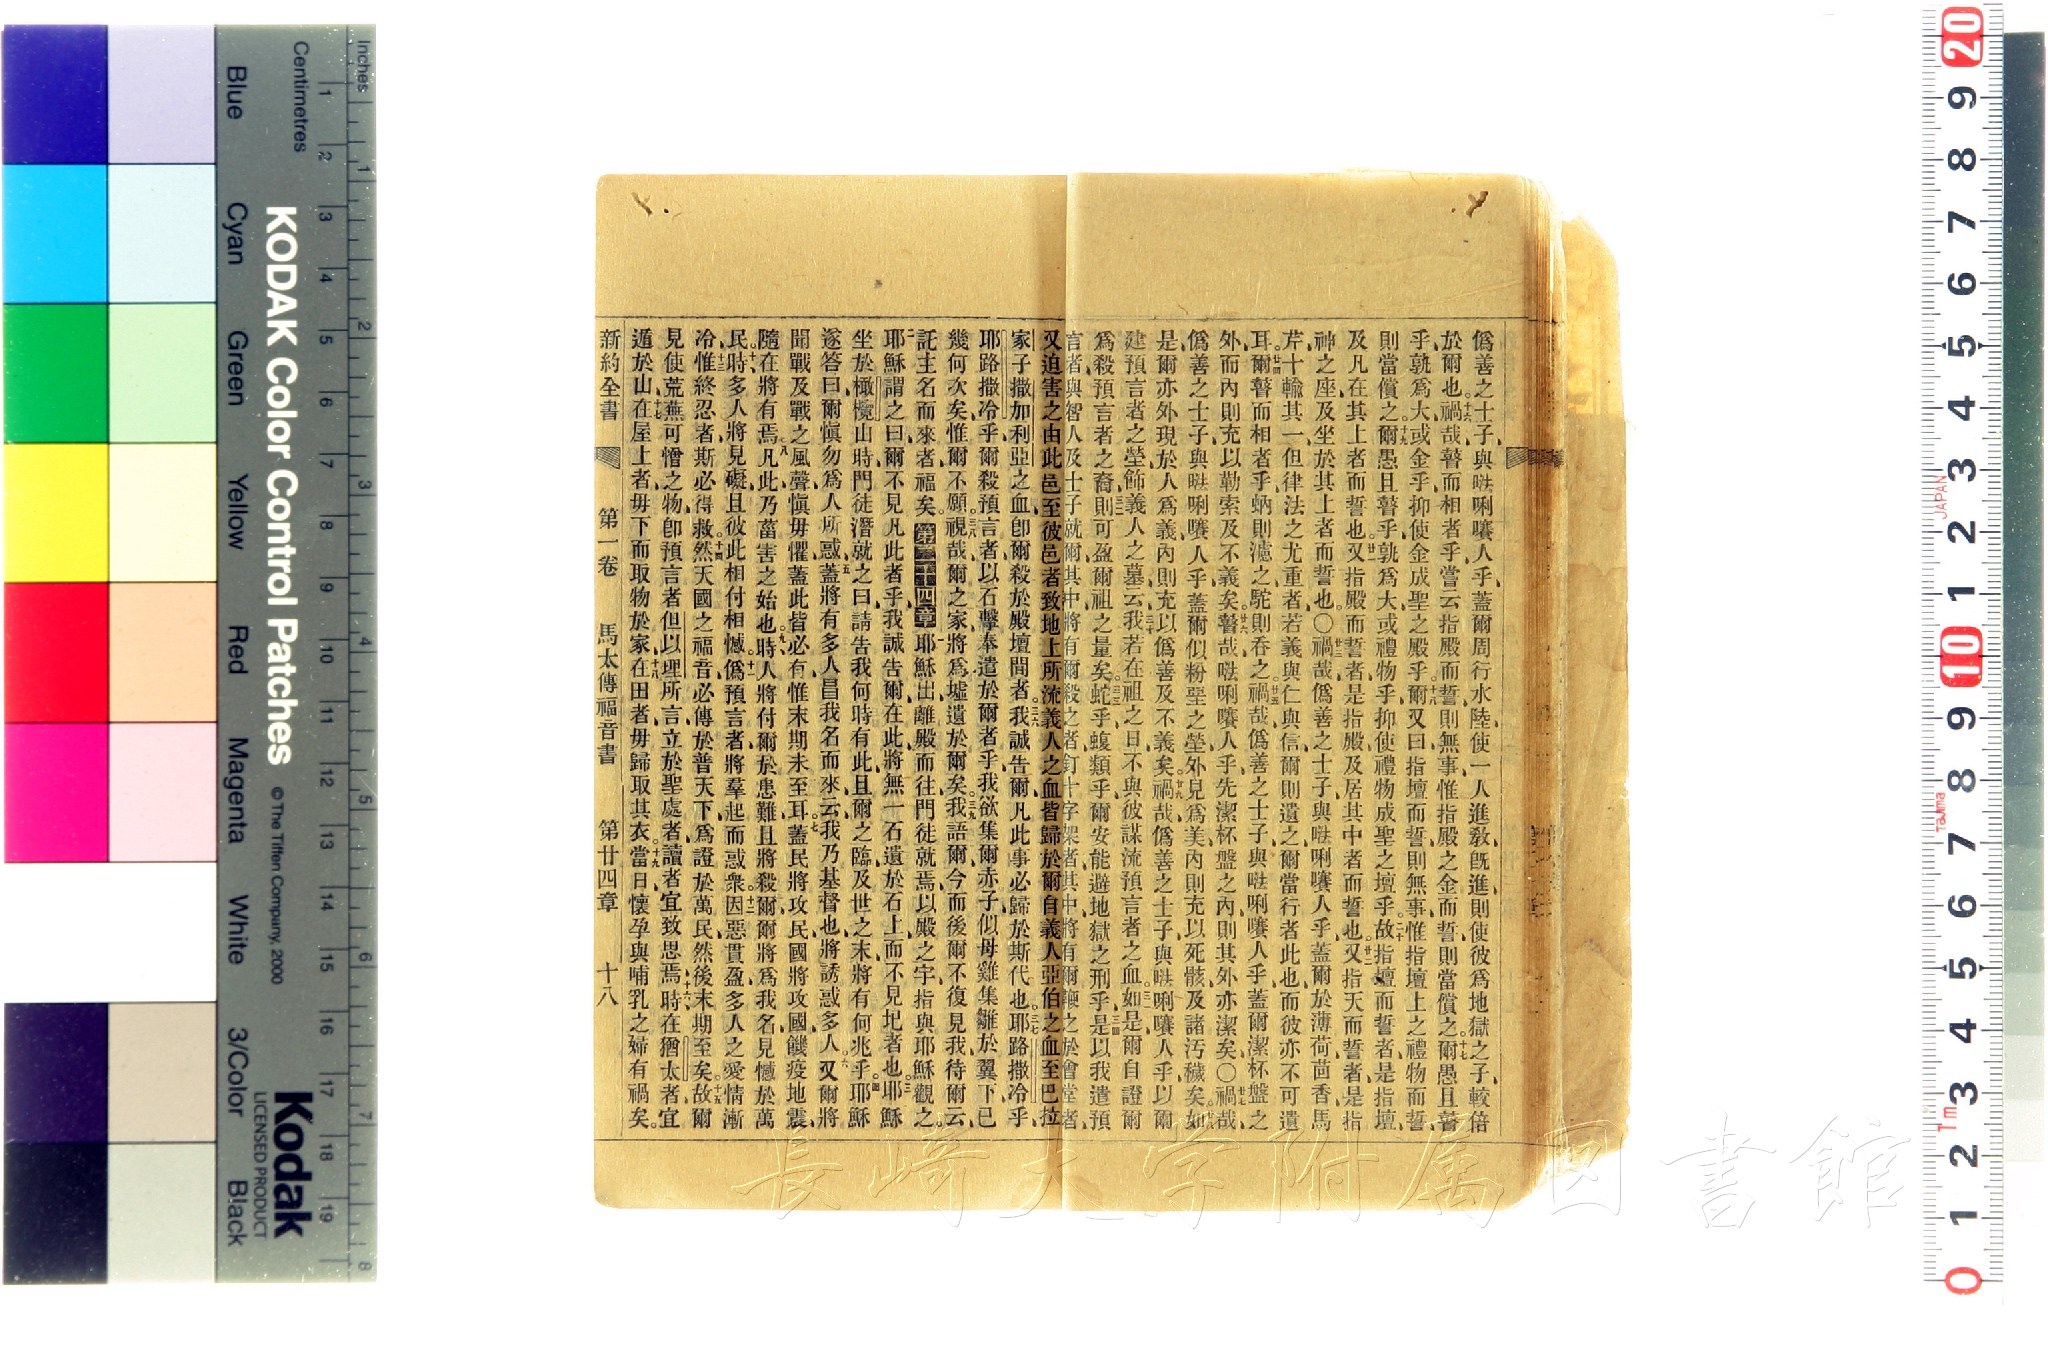 僞善之士子與𠵽唎㘔人乎、蓋爾周行水陸、使一人進敎、旣進、則使彼爲地獄之子、較倍
於爾也。十六禍哉、瞽而相者乎、嘗云、指殿而誓、則無事、惟指殿之金而誓、則當償之。十七爾愚且瞽
乎、孰爲大、或金乎、抑使金成聖之殿乎。十八爾又曰、指壇而誓、則無事、惟指壇上之禮物而誓、
則當償之。十九爾愚且瞽乎、孰爲大、或禮物乎、抑使禮物成聖之壇乎。二十故指壇而誓者、是指壇、
及凡在其上者而誓也。廿一又指殿而誓者、是指殿及居其中者而誓也。廿二又指天而誓者、是指
神之座、及坐於其上者而誓也。○廿三禍哉、僞善之士子與𠵽唎㘔人乎、蓋爾於薄荷茴香馬
芹、十輸其一、但律法之尤重者、若義與仁與信、爾則遺之、爾當行者此也、而彼亦不可遺
耳。廿四爾瞽而相者乎、蚋則濾之、駝則吞之。廿五禍哉、僞善之士子與𠵽唎㘔人乎、蓋爾潔杯盤之
外、而內則充以勒索及不義矣。廿六瞽哉、𠵽唎㘔人乎、先潔杯盤之內、則其外亦潔矣。○廿七禍哉、
僞善之士子與𠵽唎㘔人乎、蓋爾似粉堊之塋、外見爲美、內則充以死骸及諸汚穢矣。廿八如
是爾亦外現於人爲義、內則充以僞善及不義矣。廿九禍哉、僞善之士子與𠵽唎㘔人乎、以爾
建預言者之塋、飾義人之墓、三十云、我若在祖之日、不與彼謀流預言者之血。三一如是爾自證爾
爲殺預言者之裔、三二則可盈爾祖之量矣。三三蛇乎、蝮類乎、爾安能避地獄之刑乎。三四是以我遣預
言者與智人及士子就爾、其中將有爾殺之者、釘十字架者、其中將有爾鞭之於會堂者、
又迫害之由此邑至彼邑者、三五致地上所流義人之血、皆歸於爾、自義人亞伯之血、至巴拉
家子撒加利亞之血、卽爾殺於殿壇間者。三六我誠告爾、凡此事必歸於斯代也。三七耶路撒冷乎、
耶路撒冷乎、爾殺預言者、以石擊奉遣於爾者乎、我欲集爾赤子、似母雞集雛於翼下、已
幾何次矣、惟爾不願。三八視哉、爾之家將爲墟遺於爾矣。三九我語爾、今而後、爾不復見我、待爾云、
託主名而來者福矣。第二十四章 一耶穌出離殿而往、門徒就焉、以殿之宇指與耶穌觀之。
二耶穌謂之曰、爾不見凡此者乎、我誠告爾、在此將無一石遺於石上、而不見圮者也。三耶穌
坐於橄欖山時、門徒潛就之曰、請告我、何時有此、且爾之臨、及世之末、將有何兆乎。四耶穌
遂答曰、爾愼勿爲人所惑、五蓋將有多人昌我名而來、云、我乃基督也、將誘惑多人。六又爾將
聞戰、及戰之風聲、愼毋懼、蓋此皆必有、惟末期未至耳。七蓋民將攻民、國將攻國、饑疫地震、
隨在將有焉。八凡此乃菑害之始也。九時人將付爾於患難、且將殺爾、爾將爲我名、見憾於萬
民。十時多人將見礙、且彼此相付相憾。十一僞預言者將羣起而惑衆。十二因惡貫盈、多人之愛情漸
冷、十三惟終忍者斯必得救。十四然天國之福音、必傳於普天下、爲證於萬民、然後末期至矣。十五故爾
見使荒蕪可憎之物、卽預言者但以理所言、立於聖處者、讀者宜致思焉、十六時在猶太者宜
遁於山、十七在屋上者毋下而取物於家、十八在田者毋歸取其衣。十九當日懷孕與哺乳之婦有禍矣。
新約全書 第一卷 馬太傳福音書 第廿四章 十八
長崎大学附属図書館
Inches
Centimetres
Blue
Cyan
Green
Yellow
Red
Magenta
White
3/Color
Black
KODAK Color Control Patches
© The Tiffen Company, 2000
Kodak
LICENSED PRODUCT
1 2 3 4 5 6 7 8 9 10 11 12 13 14 15 16 17 18 19
1 2 3 4 5 6 7 8
20 9 8 7 6 5 4 3 2 1 10 9 8 7 6 5 4 3 2 1 0
JAPAN
Tajima
Tm